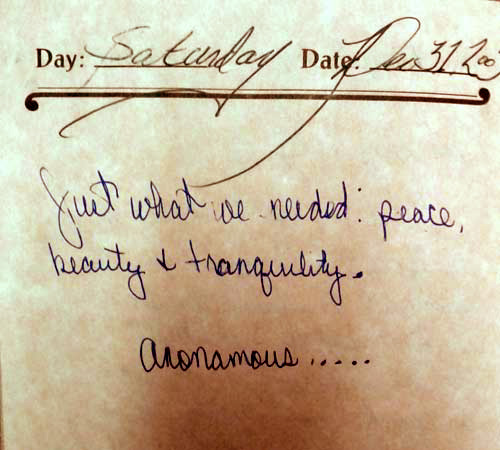 Day: Saturday Date: Dec 31, 200
Just what we needed: peace,
beauty & tranquility.
anonamous .....